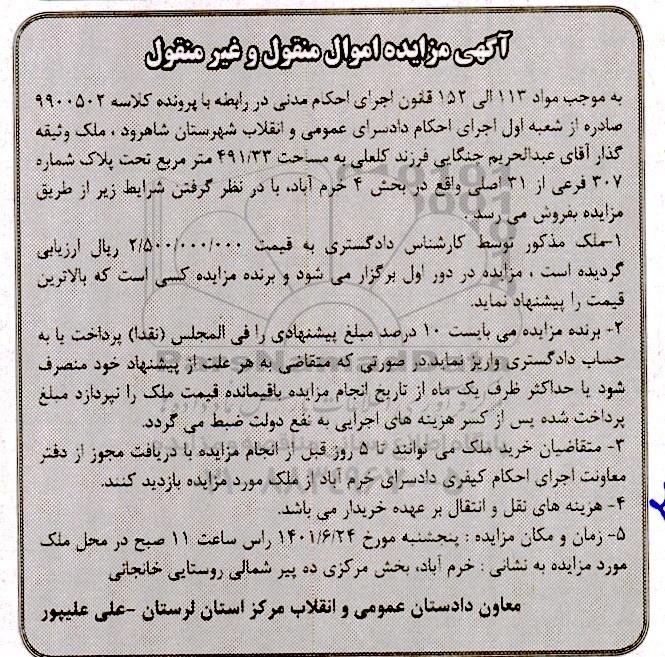 آگهی مزایده اموال منقول و غیر منقول
به موجب مواد ۱۱۳ الی ۱۵۲ قانون اجرای احکام مدنی در رابطه با پرونده کلاسه ۹۹۰۰۵۰۲
صادره از شعبه اول اجرای احکام دادسرای عمومی و انقلاب شهرستان شاهرود ، ملک وثیقه
گذار آقای عبدالحریم جنگایی فرزند کلعلی به مساحت ۴۹۱/۳۳ متر مربع تحت پلاک شماره
۳۰۷ فرعی از ۳۱ اصلی واقع در بخش ۴ خرم آباد، با در نظر گرفتن شرایط زیر از طریق
مزایده بفروش می رسد .
۱-ملک مذکور توسط کارشناس دادگستری به قیمت ۲/۵۰۰/۰۰۰/۰۰۰ ریال ارزیابی
گردیده است ، مزایده در دور اول برگزار می شود و برنده مزایده کسی است که بالاترین
قیمت را پیشنهاد نماید.
۲- برنده مزایده می بایست ۱۰ درصد مبلغ پیشنهادی را فی المجلس (نقدا) پرداخت یا به
حساب دادگستری واریز نماید.در صورتی که متقاضی به هر علت از پیشنهاد خود منصرف
شود یا حداکثر ظرف یک ماه از تاریخ انجام مزایده باقیمانده قیمت ملک را نپردازد مبلغ
پرداخت شده پس از کسر هزینه های اجرایی به نفع دولت ضبط می گردد.
۳- متقاضیان خرید ملک می توانند تا ۵ روز قبل از انجام مزایده با دریافت مجوز از دفتر
معاونت اجرای احکام کیفری دادسرای خرم آباد از ملک مورد مزایده بازدید کنند.
۴- هزینه های نقل و انتقال بر عهده خریدار می باشد.
۵- زمان و مکان مزایده : پنجشنبه مورخ ۱۴۰۱/۶/۲۴ راس ساعت ۱۱ صبح در محل ملک
مورد مزایده به نشانی : خرم آباد، بخش مرکزی ده پیر شمالی روستایی خانجانی
معاون دادستان عمومی و انقلاب مرکز استان لرستان -علی علیپور